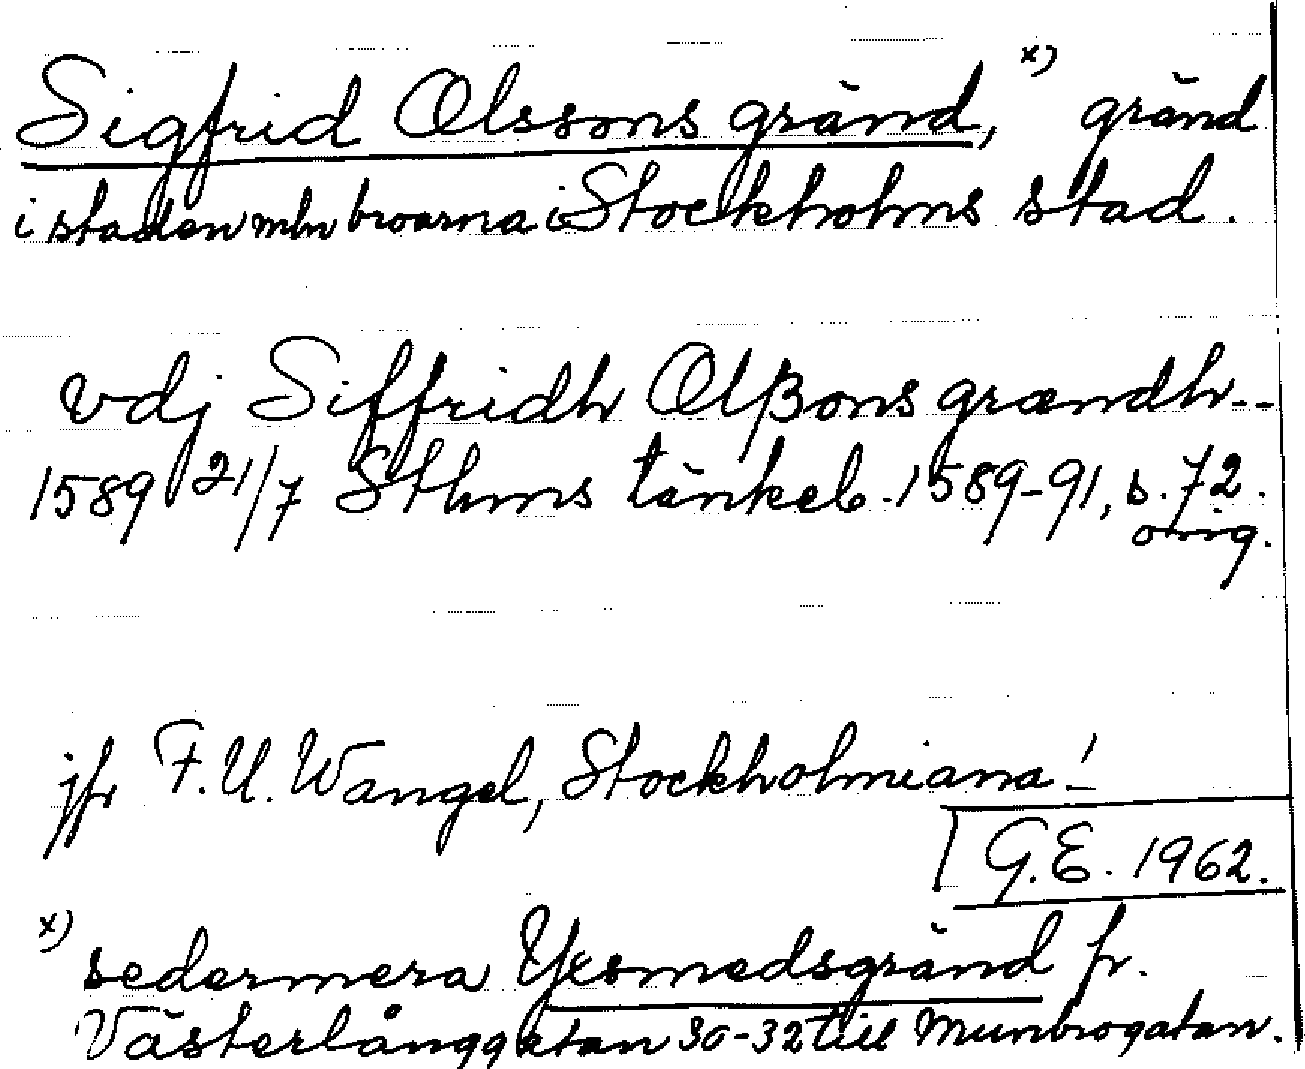 Sigfrid Olssons gränd, x) gränd
i staden mln broarna i Stockholms stad.
vdj Siffridh Olßons grændh --
1589 21/7 Sthms tänkeb. 1589-91, s. 72.
orig.
jfr F. U. Wangel, Stockholmiana!
G.E. 1962.
x)
sedermera Yxsmedsgränd fr.
Västerlånggatan 30-32 till Munbrogatan.